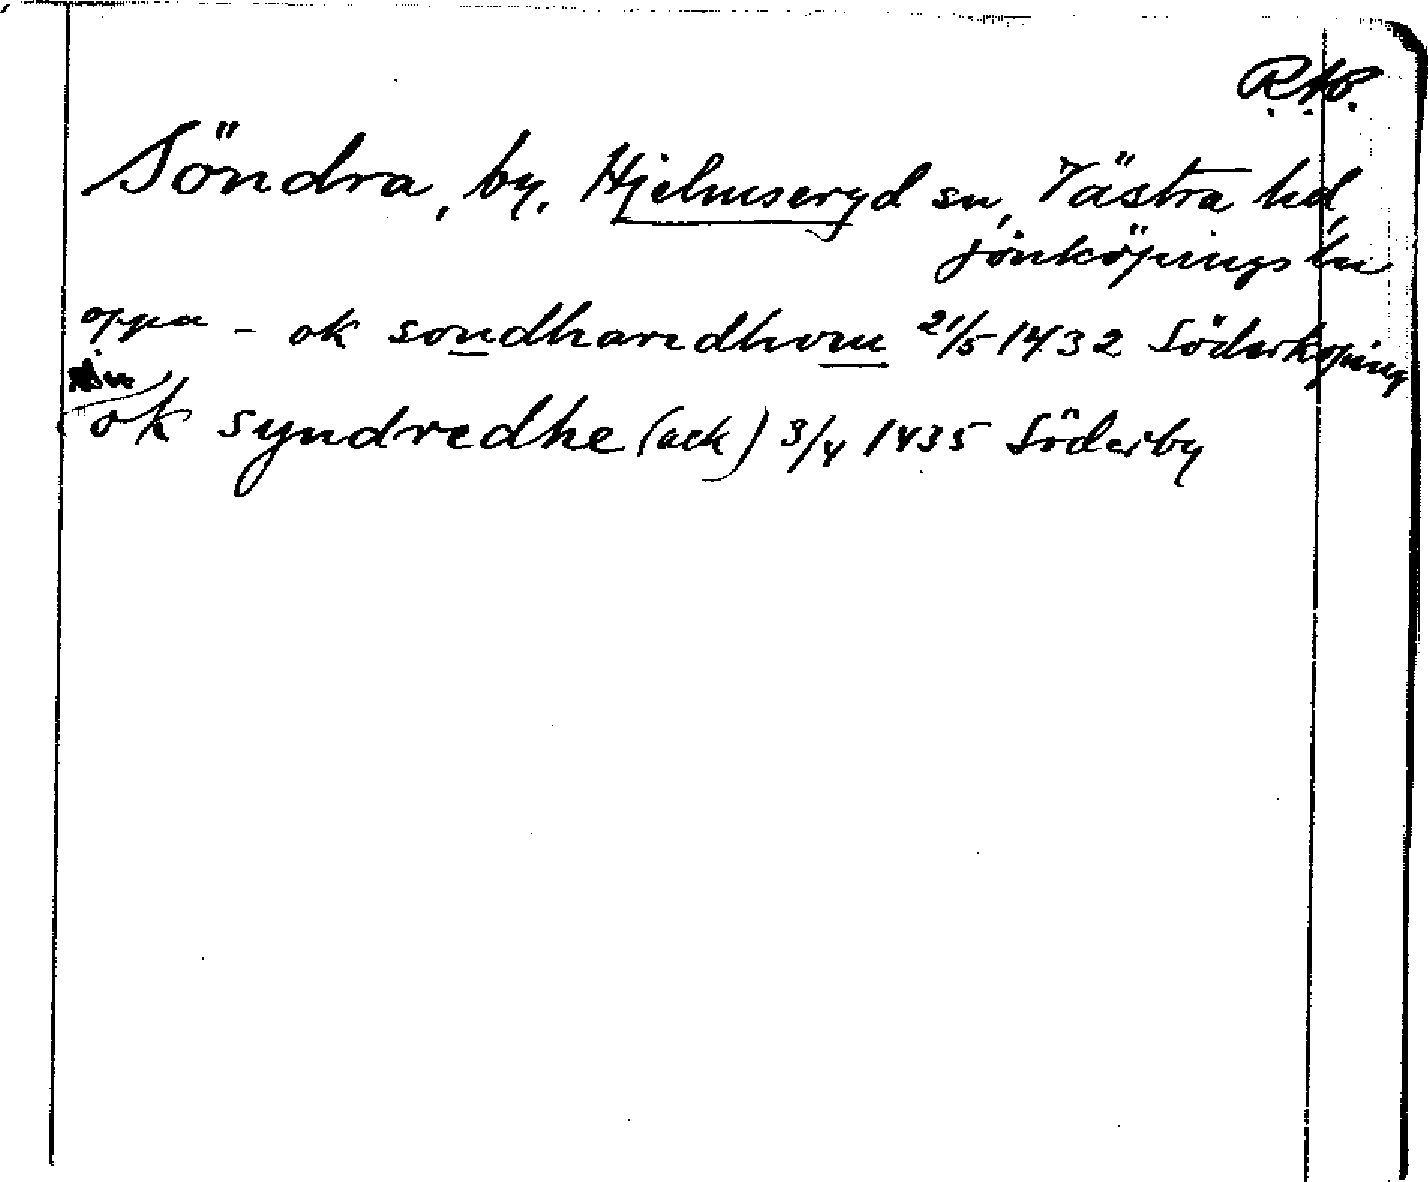 R.A.P.
Söndra, by, Hjelmseryd sn, Västra hd,
Jönköpings län
oppa - ok sondhardhom 21/5 1432 Söderköping
ok syndredhe (ack) 3/4 1435 Söderby